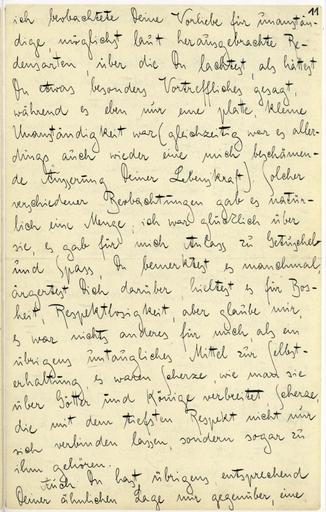 11
ich beobachtete Deine Vorliebe für unanstän-
dige, möglichst laut herausgebrachte Re-
densarten, über die Du lachtest, als hättest
Du etwas besonders Vortreffliches gesagt,
während es eben nur eine platte, kleine
Unanständigkeit war (gleichzeitig war es aller-
dings auch wieder eine mich beschämen-
de Äusserung Deiner Lebenskraft). Solcher
verschiedener Beobachtungen gab es natür-
lich eine Menge; ich war glücklich über
sie, es gab für mich Anlass zu Getuschel
und Spass, Du bemerktest es manchmal,
ärgertest Dich darüber, hieltest es für Bos-
heit, Respektlosigkeit, aber glaube mir,
es war nichts anderes für mich als ein
übrigens untaugliches Mittel zur Selbst-
erhaltung, es waren Scherze, wie man sie
über Götter und Könige verbreitet, Scherze,
die mit dem tiefsten Respekt nicht nur
sich verbinden lassen, sondern sogar zu
ihm gehören.
Auch Du hast übrigens entsprechend
Deiner ähnlichen Lage mir gegenüber, eine